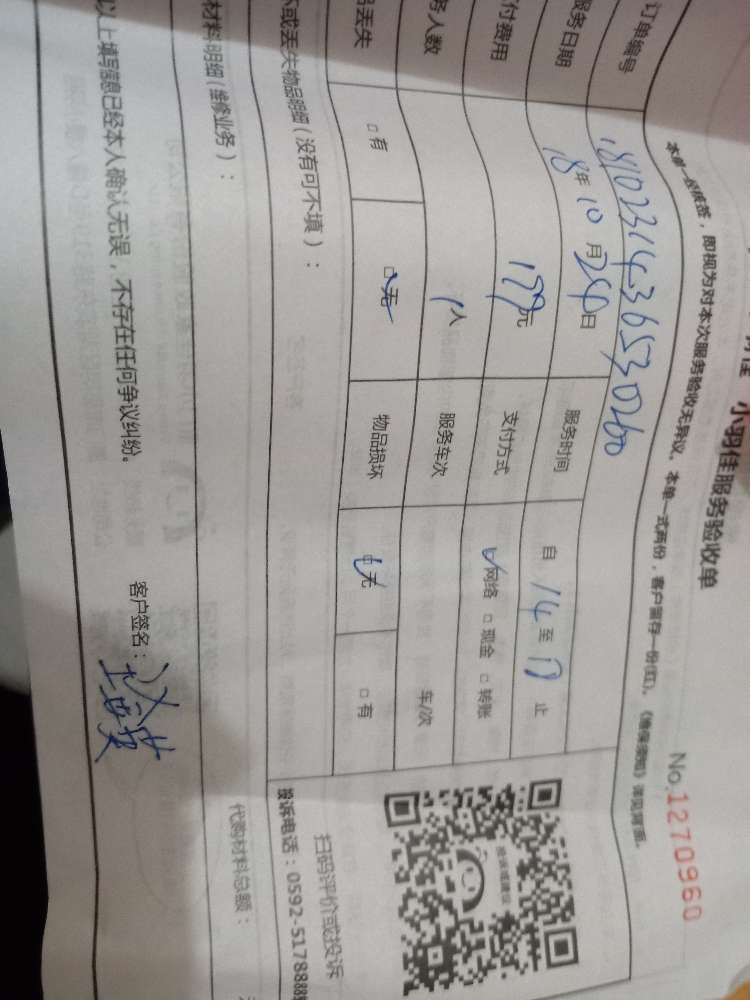 小羽佳服务验收单
No.1270960
本单一经核签，即视为对本次服务验收无异议。本单一式两份，客户留存一份(红)。《维保须知》详见背面。
订单编号 1810231436530260
服务日期 18年10月24日 服务时间 自 14 至 17 止
付费用 179元 支付方式 ☑网络 □现金 □转账
务人数 1人 服务车次 车/次
品丢失 □有 ☑无 物品损坏 ☑无 □有
坏或丢失物品明细（没有可不填）：
材料明细（维修业务）：
代购材料总额：
以上填写信息已经本人确认无误，不存在任何争议纠纷。
客户签名：
投诉或建议
扫码评价或投诉
投诉电话：0592-5178888